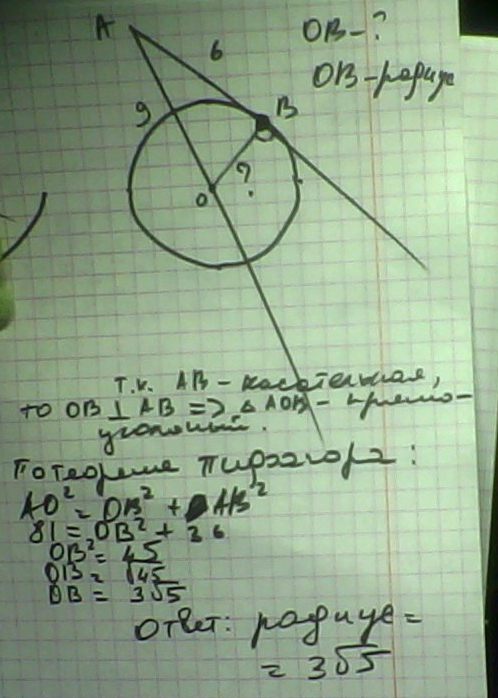 A
6
OB - ?
OB - радиус
9
B
O
?
т.к. AB - касательная,
то OB ⊥ AB => △ AOB - прямо-
угольный.
По теореме Пифагора:
AO² = OB² + AB²
81 = OB² + 36
OB² = 45
OB = √45
OB = 3√5
Ответ: радиус =
= 3√5